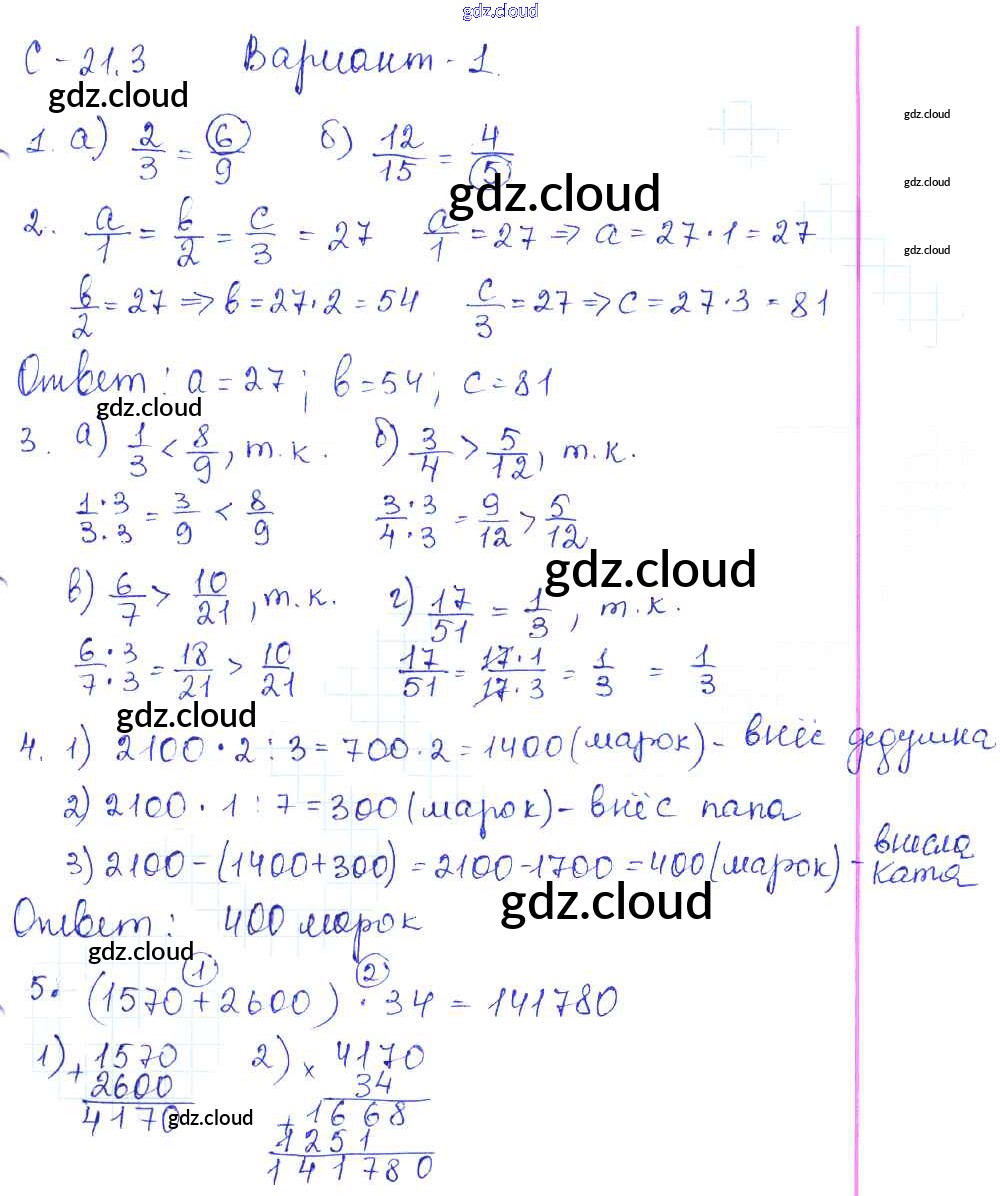 gdz.cloud
С-21.3 Вариант-1.
gdz.cloud
gdz.cloud
1. а) 2/3 = 6/9 б) 12/15 = 4/5
gdz.cloud
gdz.cloud
2. a/1 = b/2 = c/3 = 27 a/1 = 27 => a = 27·1 = 27
gdz.cloud
b/2 = 27 => b = 27·2 = 54 c/3 = 27 => c = 27·3 = 81
Ответ: a = 27; b = 54; c = 81
gdz.cloud
3. а) 1/3 < 8/9, т.к. б) 3/4 > 5/12, т.к.
1·3/3·3 = 3/9 < 8/9 3·3/4·3 = 9/12 > 5/12
gdz.cloud
в) 6/7 > 10/21, т.к. г) 17/51 = 1/3, т.к.
6·3/7·3 = 18/21 > 10/21 17/51 = 17·1/17·3 = 1/3 = 1/3
gdz.cloud
4. 1) 2100·2:3 = 700·2 = 1400 (марок) - внёс дедушка
2) 2100·1:7 = 300 (марок) - внёс папа
3) 2100-(1400+300) = 2100-1700 = 400 (марок) - внесла Катя
gdz.cloud
Ответ: 400 марок
gdz.cloud
1 2
5. (1570+2600)·34 = 141780
1) + 1570 2) × 4170
2600 34
4170 + 1668
gdz.cloud
1251
141780